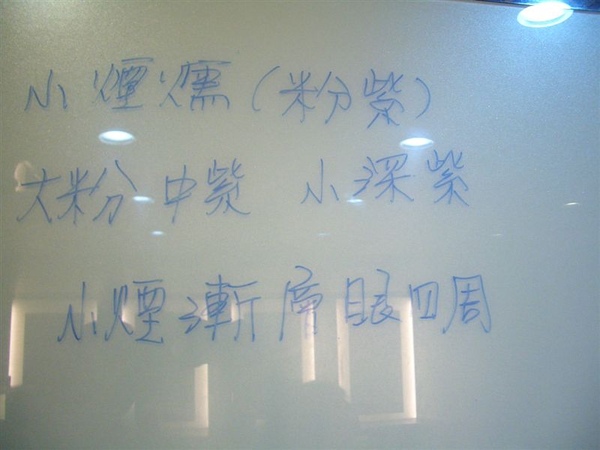 小煙燻(粉紫)
大粉 中紫 小深紫
小煙漸層眼四周